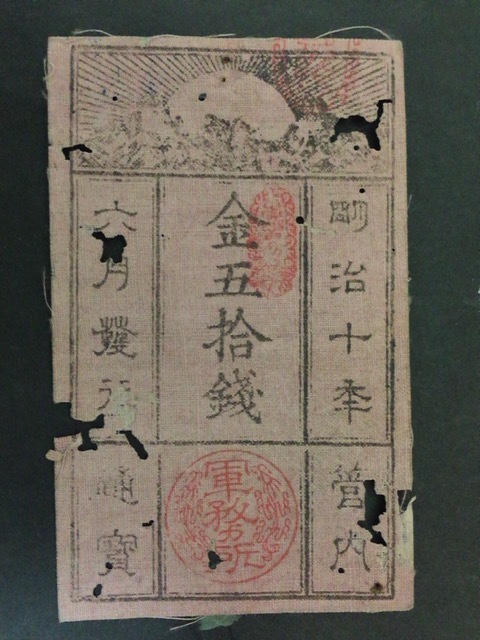 明治十年
管内
金五拾錢
軍務所
六月發行
通寳